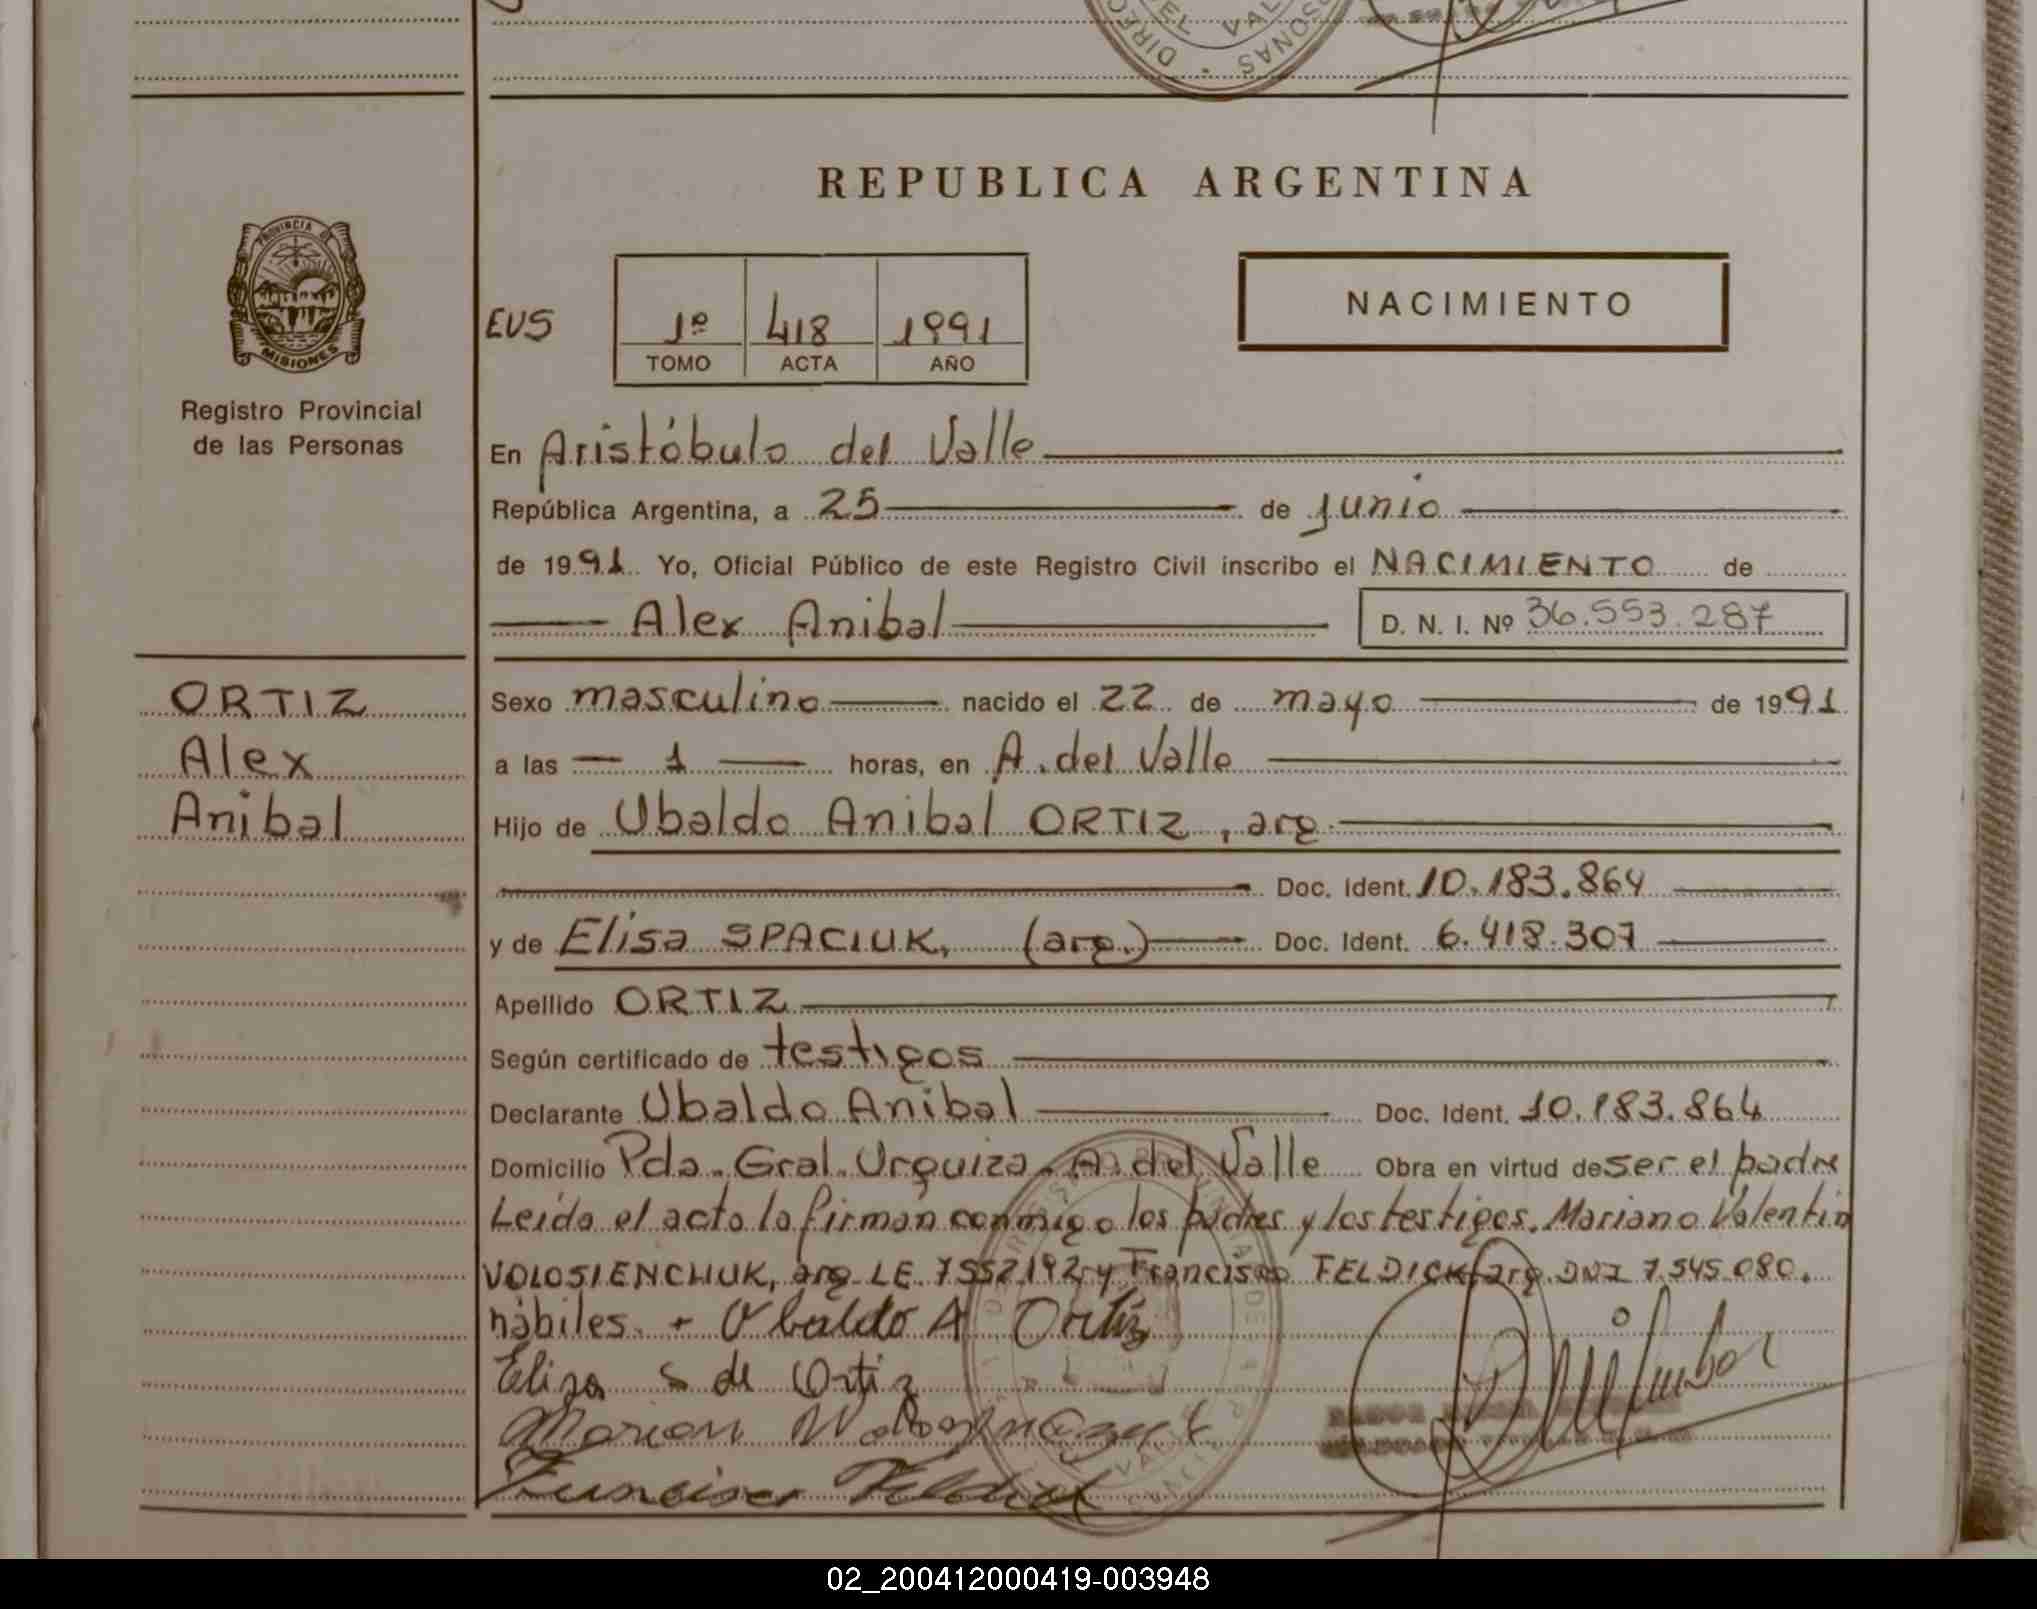 REPUBLICA ARGENTINA
PROVINCIA DE
MISIONES
Registro Provincial
de las Personas
EVS
1º 418 1991
TOMO ACTA AÑO
NACIMIENTO
En Aristóbulo del Valle
República Argentina, a 25 de junio
de 1991 Yo, Oficial Público de este Registro Civil inscribo el NACIMIENTO de
Alex Anibal D. N. I. Nº 36.553.287
ORTIZ
Alex
Anibal
Sexo masculino nacido el 22 de mayo de 1991
a las 1 horas, en A. del Valle
Hijo de Ubaldo Anibal ORTIZ, arg.
Doc. Ident. 10.183.864
y de Elisa SPACIUK, (arg.) Doc. Ident. 6.418.307
Apellido ORTIZ
Según certificado de testigos
Declarante Ubaldo Anibal Doc. Ident. 10.183.864
Domicilio Pda. Gral. Urquiza. A. del Valle Obra en virtud de ser el padre
Leída el acta la firman conmigo los padres y los testigos. Mariano Valentin
VOLOSIENCHUK, arg. LE. 7552192 y Francisco FELDICK, arg. DNI 7.545.080.
hábiles. - Ubaldo A Ortiz
Elisa S de Ortiz
Francisco Feldick
02_200412000419-003948